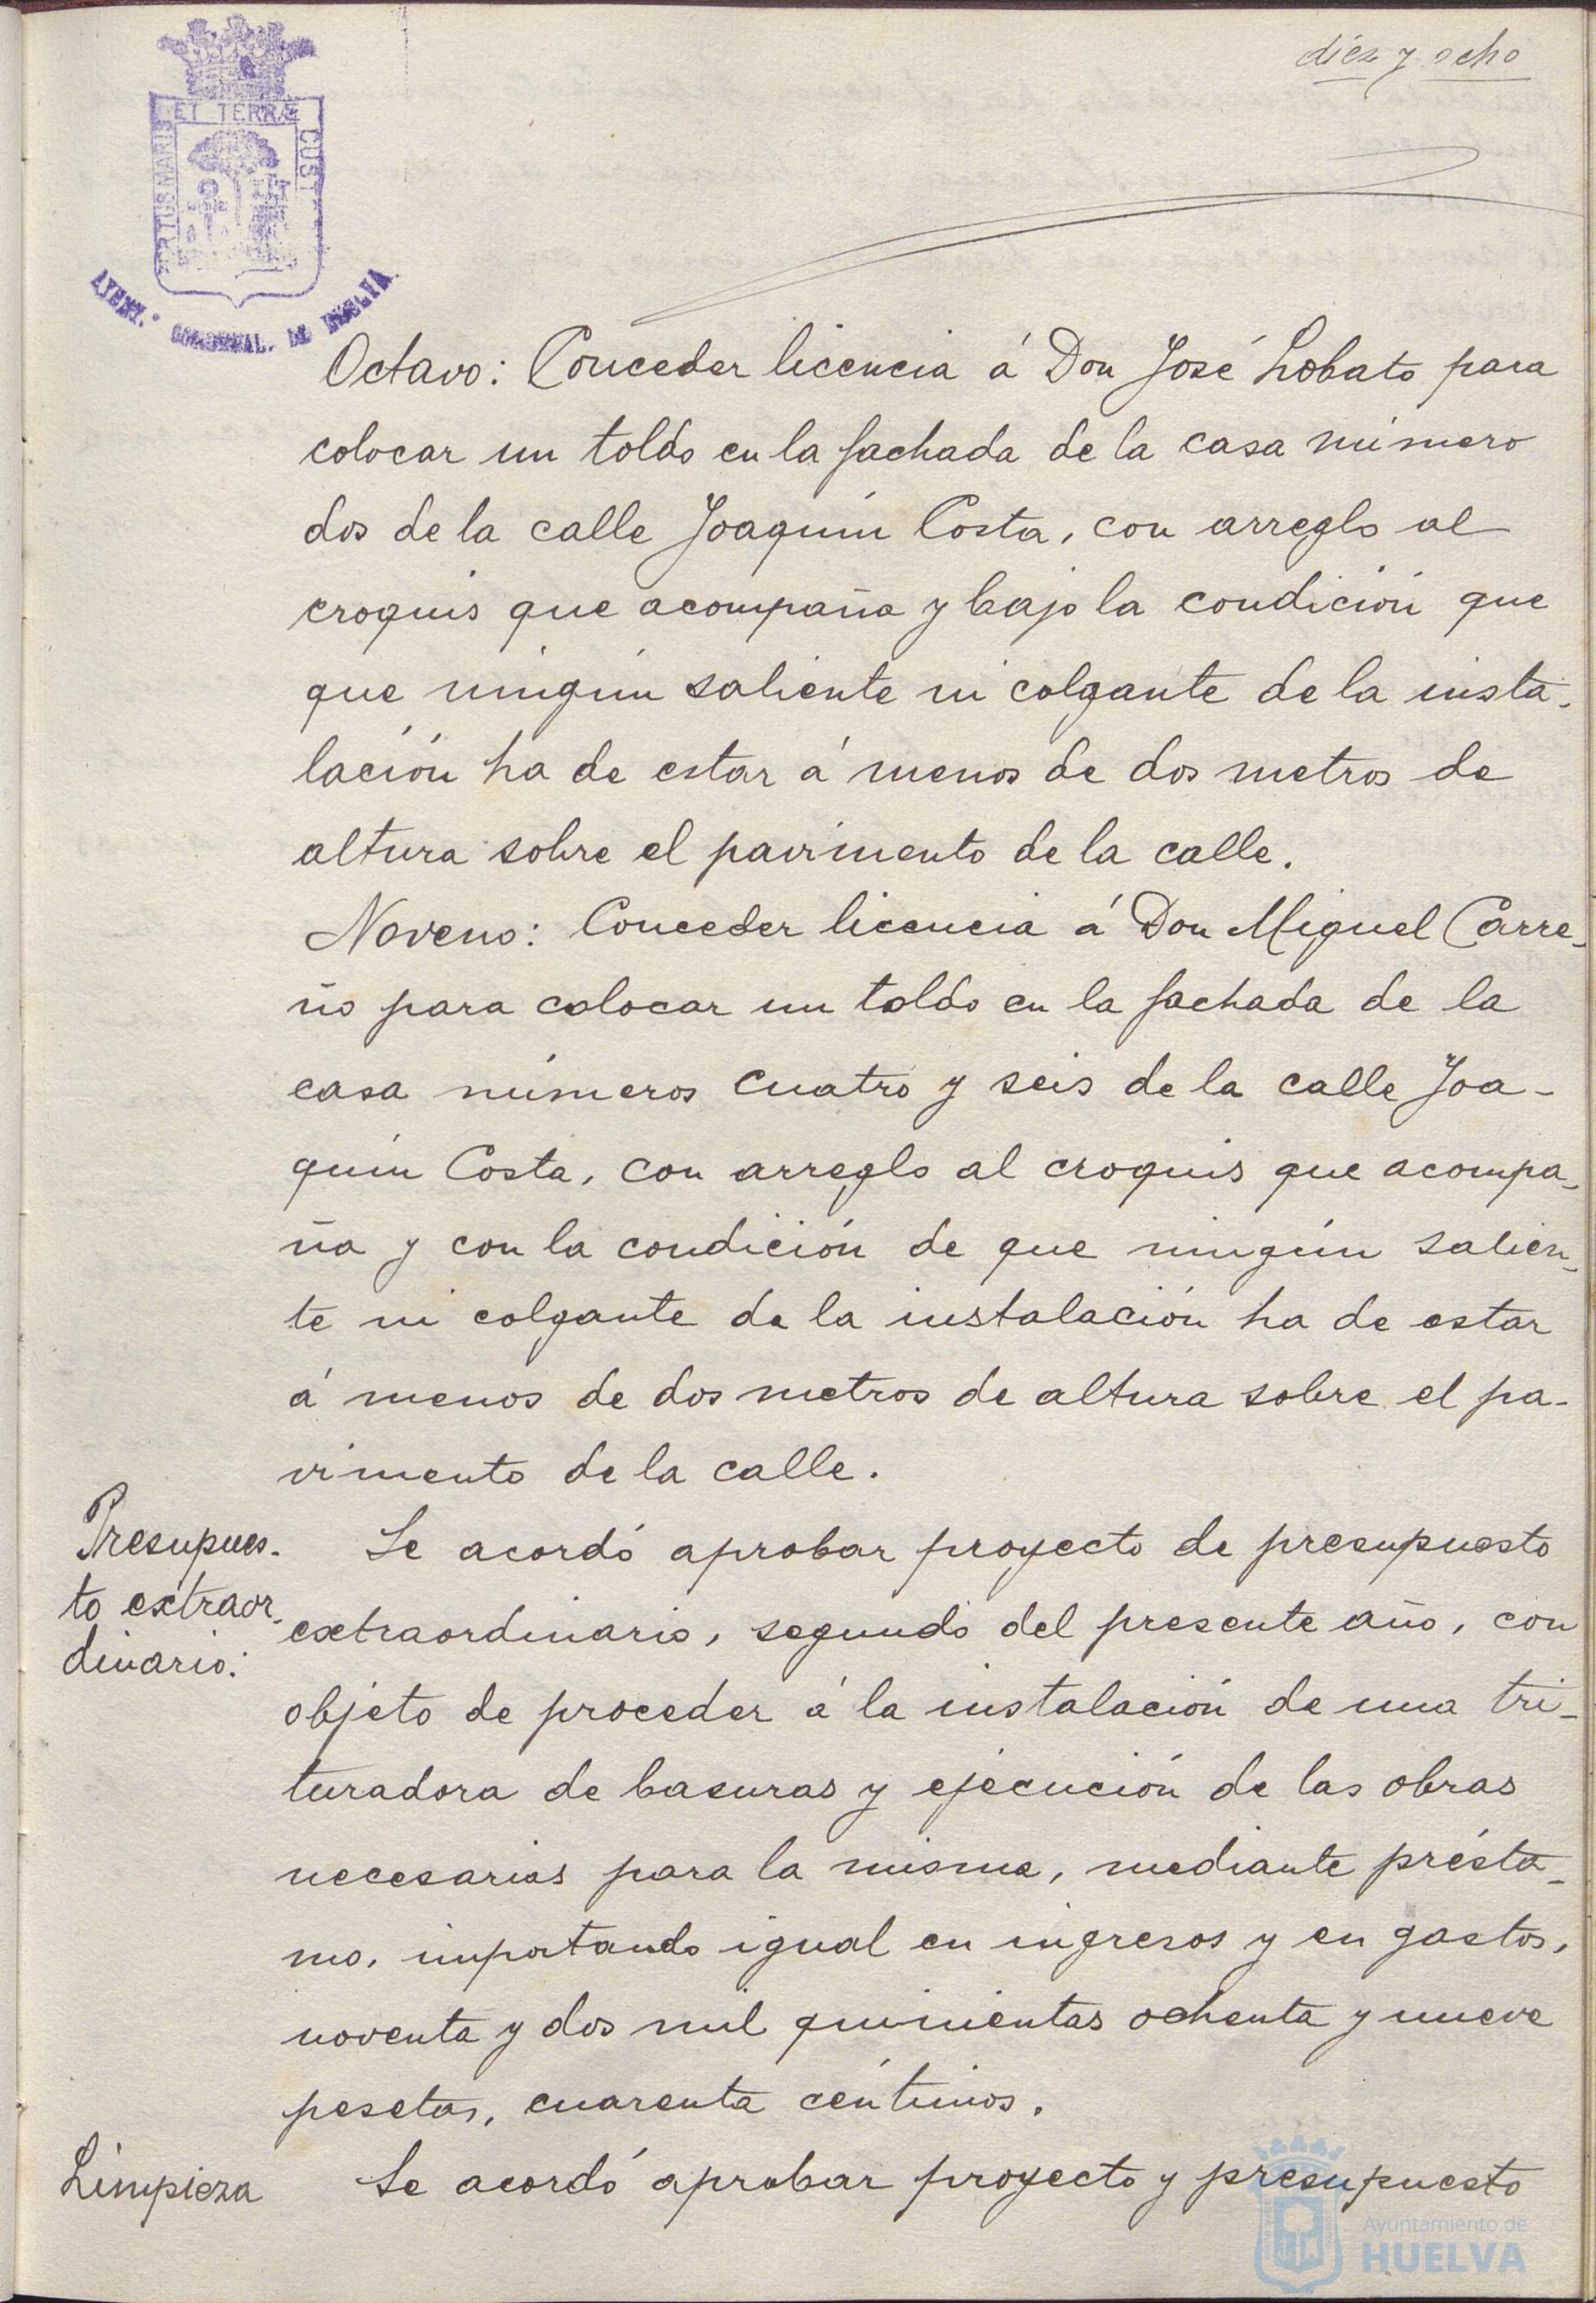 diez y ocho
ET TERRÆ
PORTUS MARIS
CUST
AYUNT.º CONSTNAL. DE HUELVA
Octavo: Conceder licencia á Don José Lobato para
colocar un toldo en la fachada de la casa número
dos de la calle Joaquín Costa, con arreglo al
croquis que acompaña y bajo la condición que
que ningún saliente ni colgante de la insta-
lación ha de estar á menos de dos metros de
altura sobre el pavimento de la calle.
Noveno: Conceder licencia á Don Miguel Carre-
ño para colocar un toldo en la fachada de la
casa números cuatro y seis de la calle Joa-
quín Costa, con arreglo al croquis que acompa-
ña y con la condición de que ningún salien-
te ni colgante de la instalación ha de estar
á menos de dos metros de altura sobre el pa-
vimento de la calle.
Presupues-
to extraor-
dinario:
Se acordó aprobar proyecto de presupuesto
extraordinario, segundo del presente año, con
objeto de proceder á la instalación de una tri-
turadora de basuras y ejecución de las obras
necesarias para la misma, mediante présta-
mo, importando igual en ingresos y en gastos,
noventa y dos mil quinientas ochenta y nueve
pesetas, cuarenta céntimos.
Limpieza
Se acordó aprobar proyecto y presupuesto
Ayuntamiento de
HUELVA